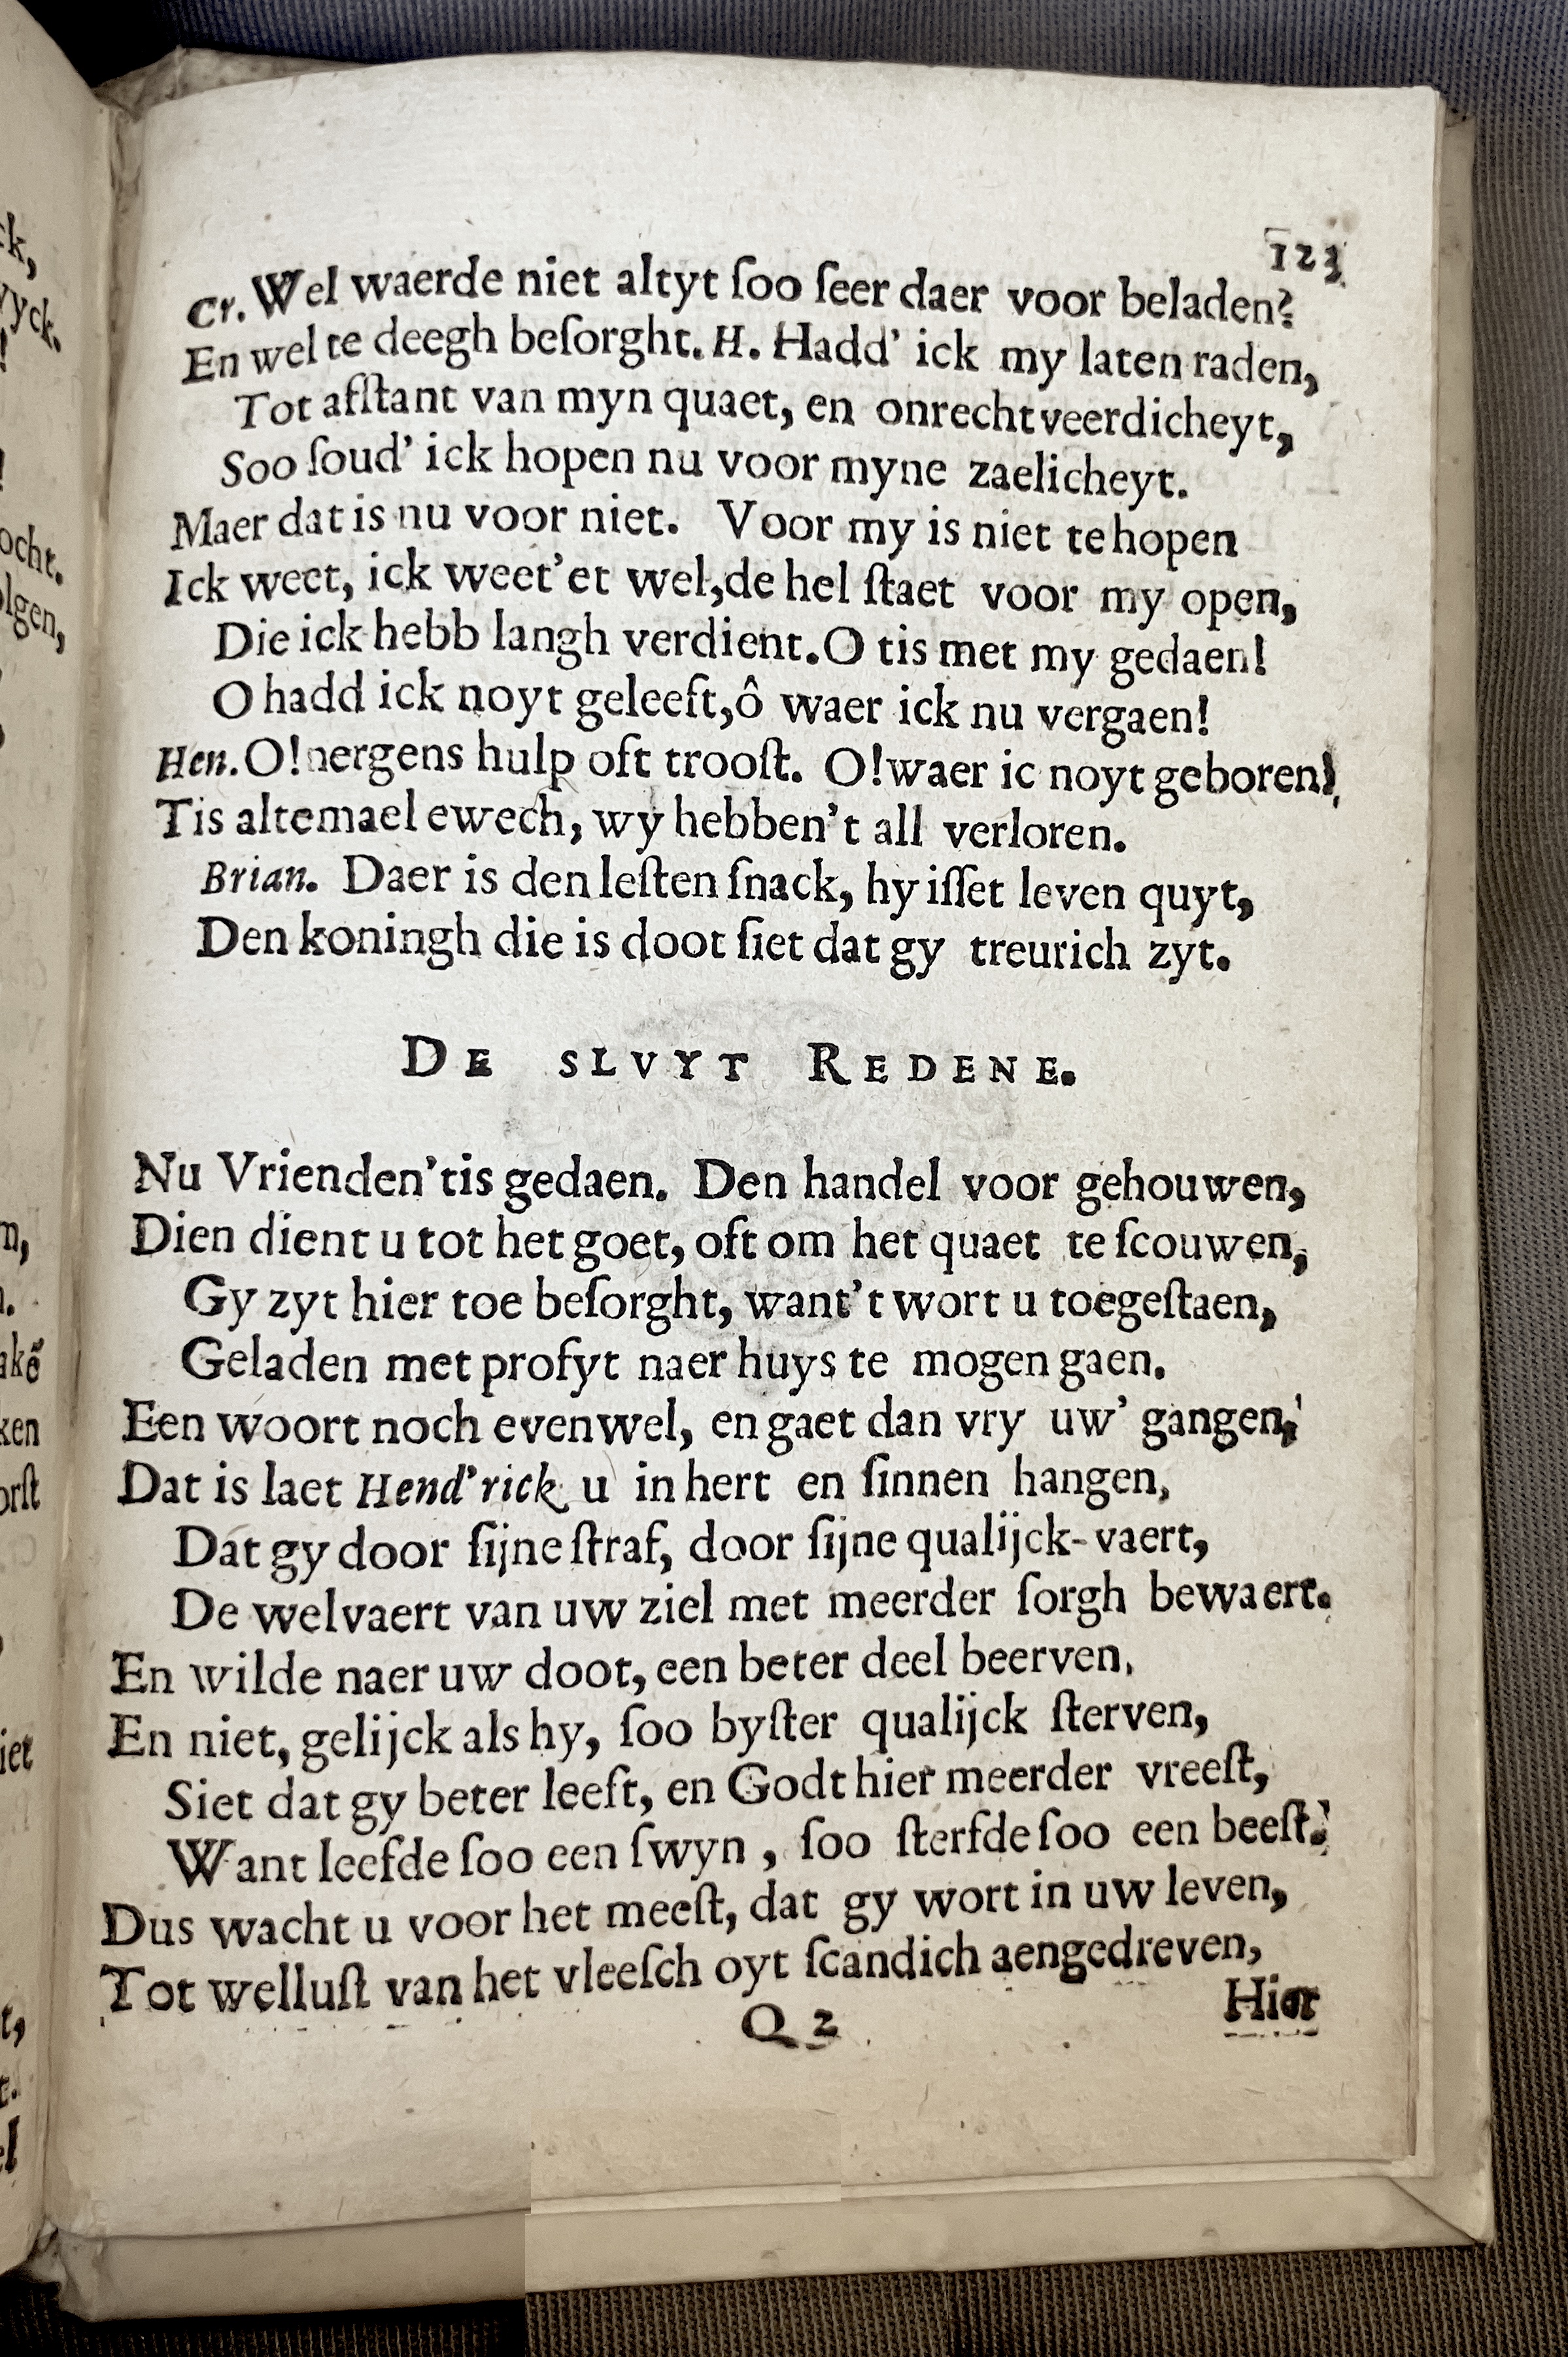 123
Cr. Wel waerde niet altyt ſoo ſeer daer voor beladen?
En wel te deegh beſorght. H. Hadd' ick my laten raden,
Tot afſtant van myn quaet, en onrechtveerdicheyt,
Soo ſoud' ick hopen nu voor myne zaelicheyt.
Maer dat is nu voor niet. Voor my is niet te hopen
Ick weet, ick weet'et wel, de hel ſtaet voor my open,
Die ick hebb langh verdient. O tis met my gedaen!
O hadd ick noyt geleeft, ô waer ick nu vergaen!
Hen. O! nergens hulp oft trooſt. O! waer ic noyt geboren!
Tis altemael ewech, wy hebben't all verloren.
Brian. Daer is den leſten ſnack, hy iſſet leven quyt,
Den koningh die is doot ſiet dat gy treurich zyt.
DE SLVYT REDENE.
Nu Vrienden'tis gedaen. Den handel voor gehouwen,
Dien dient u tot het goet, oft om het quaet te ſcouwen,
Gy zyt hier toe beſorght, want't wort u toegeſtaen,
Geladen met profyt naer huys te mogen gaen.
Een woort noch evenwel, en gaet dan vry uw' gangen,
Dat is laet Hend'rick u in hert en ſinnen hangen,
Dat gy door ſijne ſtraf, door ſijne qualijck-vaert,
De welvaert van uw ziel met meerder ſorgh bewaert.
En wilde naer uw doot, een beter deel beerven,
En niet, gelijck als hy, ſoo byſter qualijck ſterven,
Siet dat gy beter leeft, en Godt hier meerder vreeſt,
Want leefde ſoo een ſwyn, ſoo ſterfde ſoo een beeſt.
Dus wacht u voor het meeſt, dat gy wort in uw leven,
Tot welluſt van het vleeſch oyt ſcandich aengedreven,
Q 2
Hier